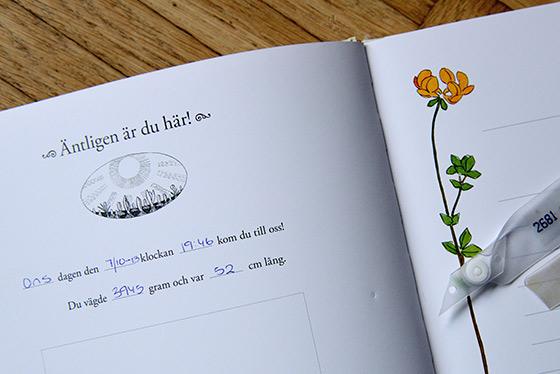 Äntligen är du här!
Ons dagen den 7/10-13 klockan 19.46 kom du till oss!
Du vägde 3945 gram och var 52 cm lång.
2681